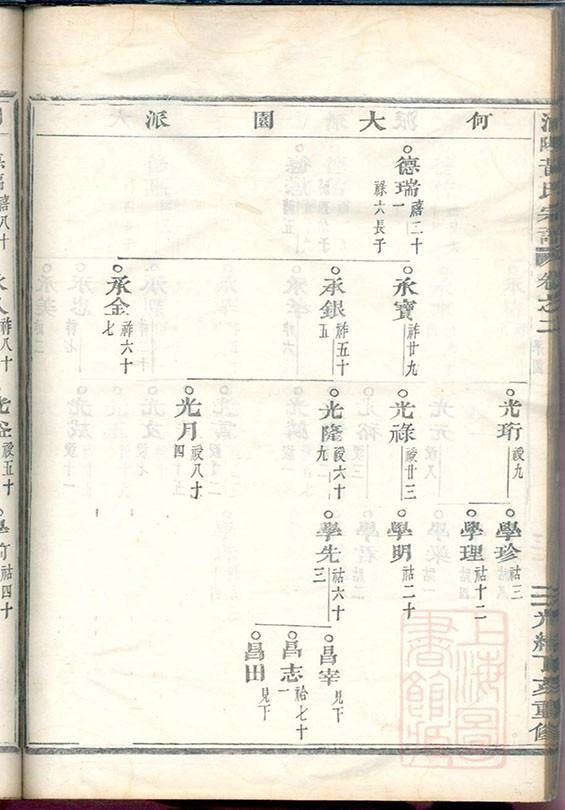 何大園派
德瑞 禧二十一 祿六長子
承寶 祚廿九
承銀 祚五十五
承金 祚六十七
光珩 祋九
光祿 祋廿三
光隆 祋六十九二
光月 祋八十四
學珍 祜三
學理 祜十二
學明 祜二十
學先 祜六十三
昌宰 見下
昌志 祫七十一
昌田 見下
氏宗譜 卷之二
光緒丁亥重修
上海圖書館藏